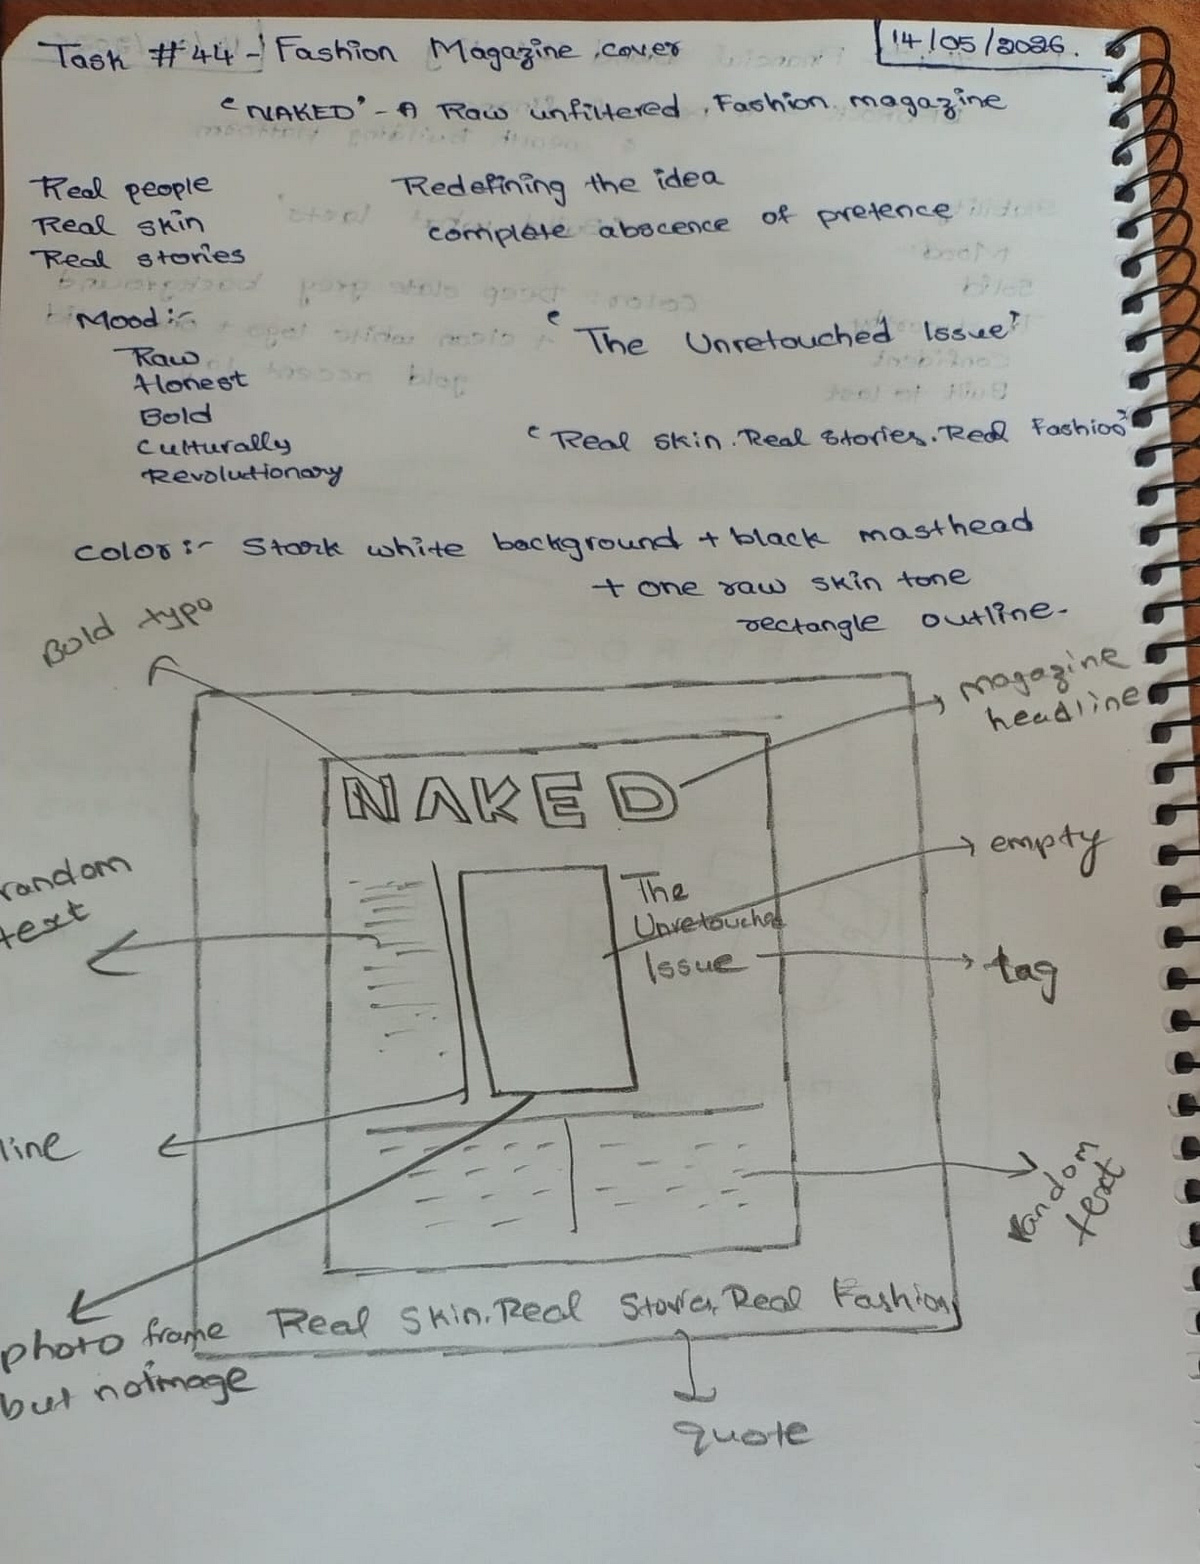 Task #44 - Fashion Magazine cover
14/05/2026.
"NAKED" - A Raw unfiltered Fashion magazine
Real people
Real skin
Real stories
Redefining the idea
complete abscence of pretence
Mood :-
Raw
Honest
Bold
Culturally
Revolutionary
"The Unretouched Issue"
"Real skin. Real stories. Real Fashion"
Color :- Stark white background + black masthead
+ one raw skin tone
rectangle outline.
Bold typo
magazine
headline
NAKED
empty
random
text
The
Unretouched
Issue
tag
line
random
text
photo frame
but no image
Real Skin. Real Stories. Real Fashion
quote